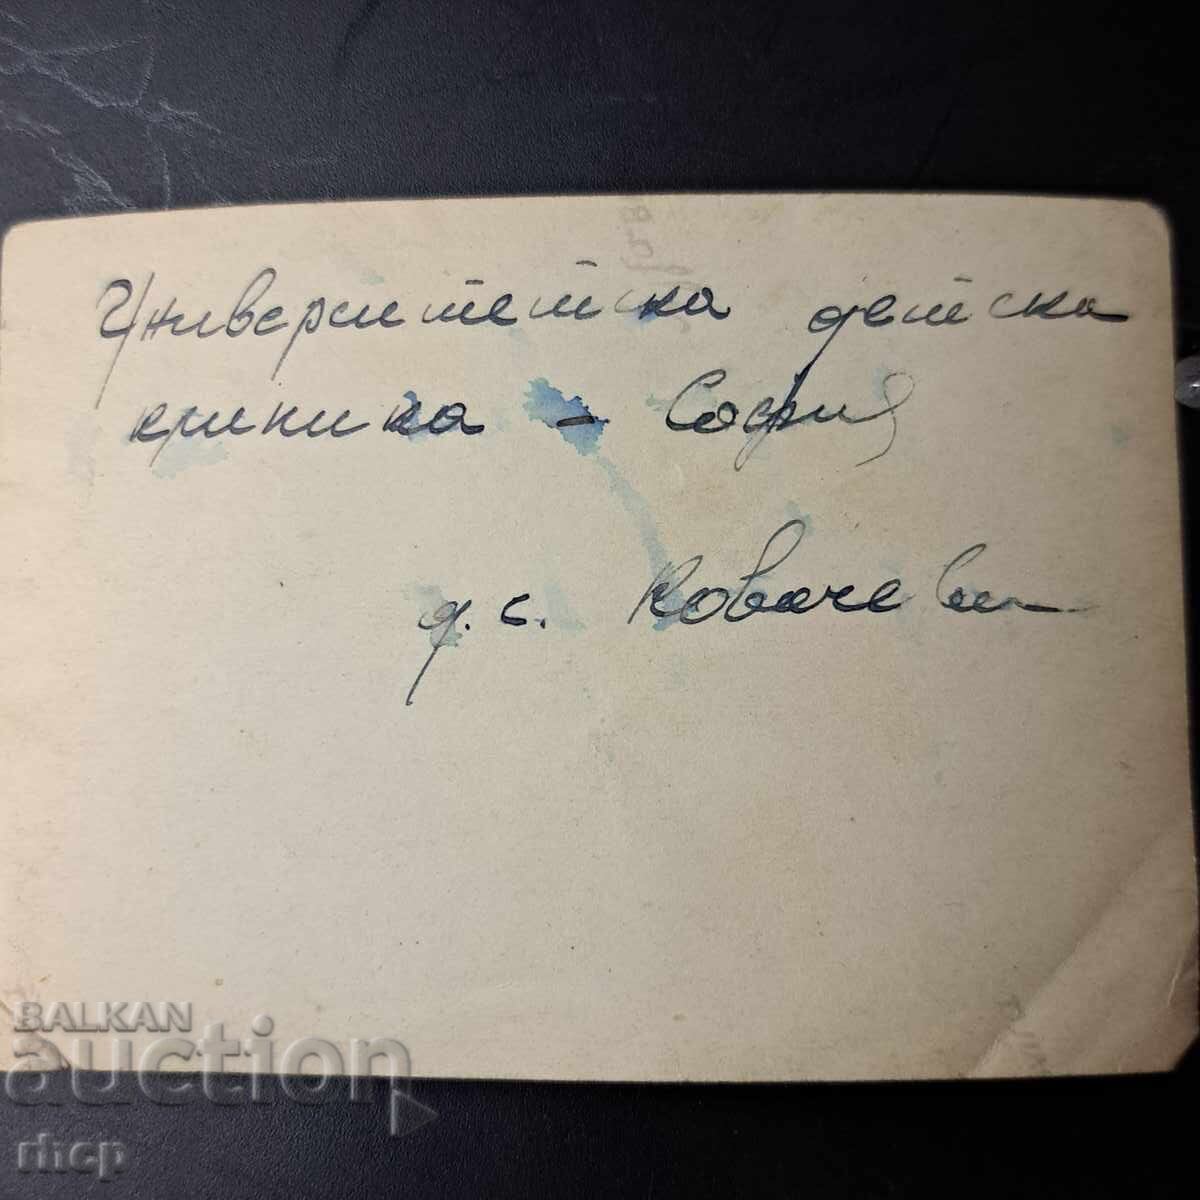 Университетска детска
клиника - София
д. с. Ковачева
BALKAN
auction
rhcp